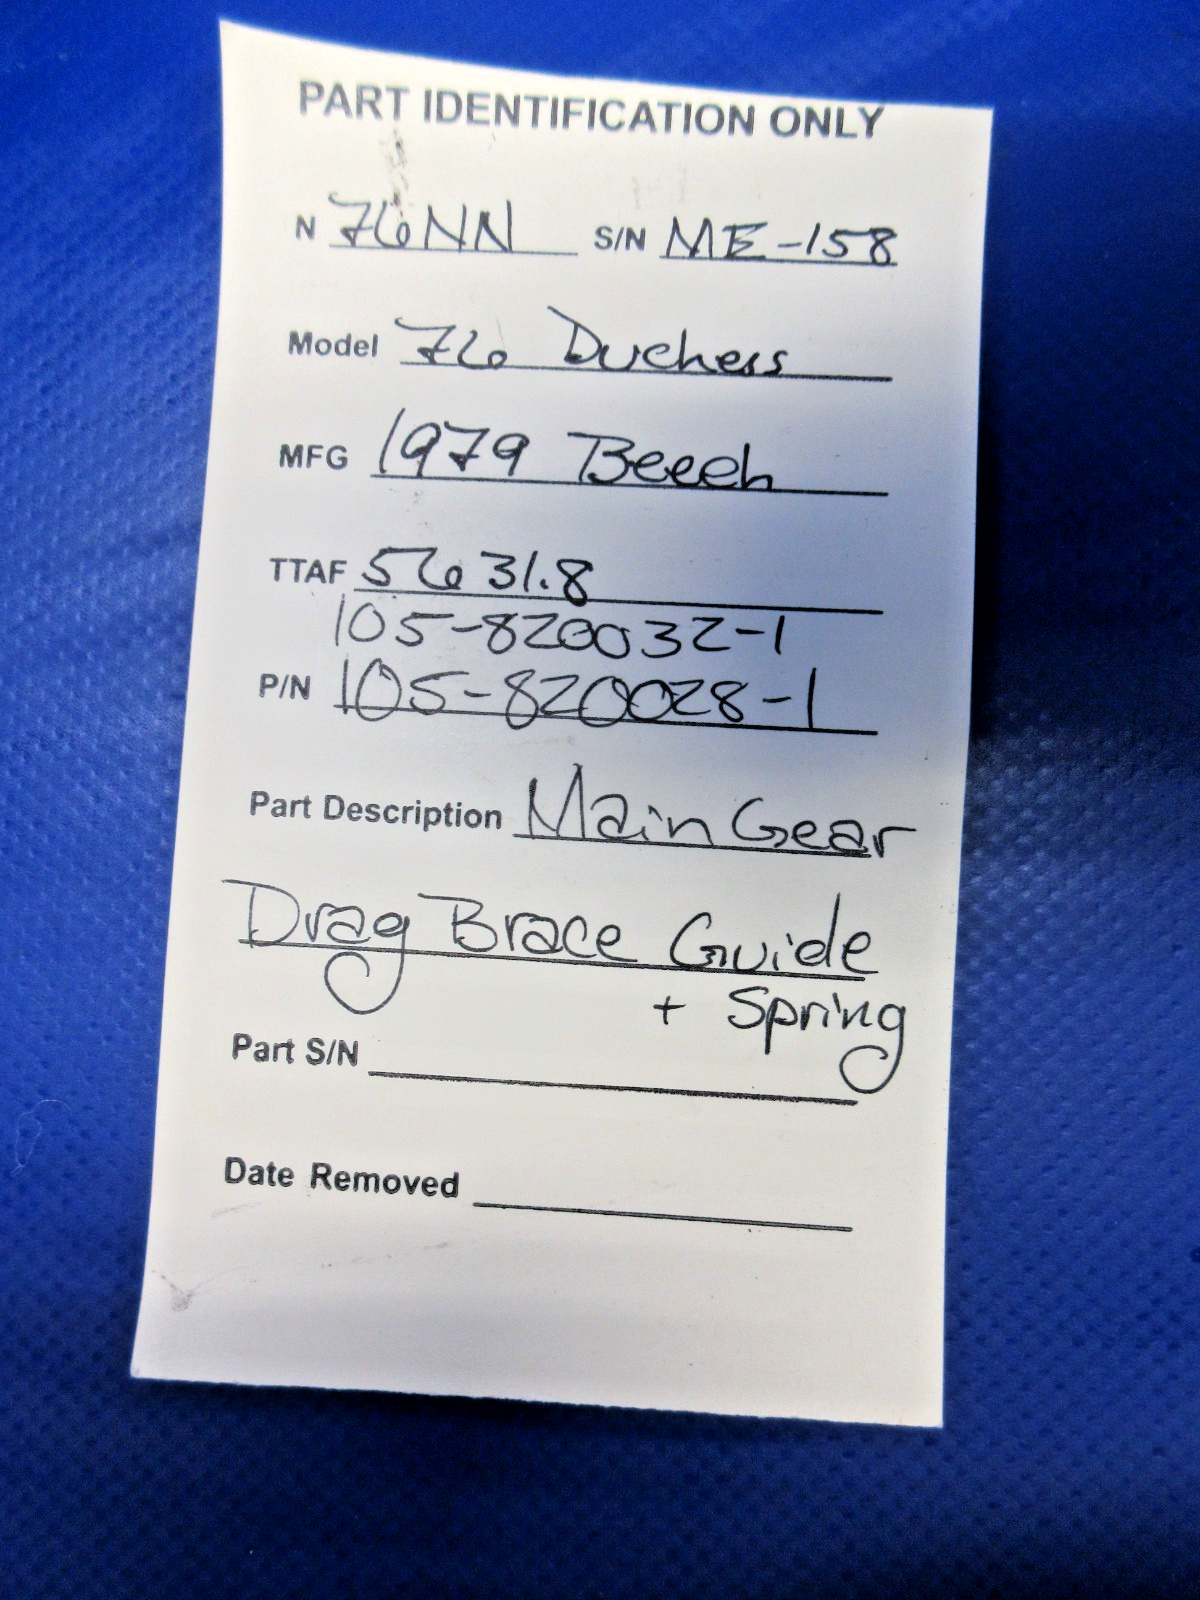 PART IDENTIFICATION ONLY
N 76NN S/N ME-158
Model 76 Duchess
MFG 1979 Beech
TTAF 5631.8
105-820032-1
P/N 105-820028-1
Part Description Main Gear
Drag Brace Guide
+ Spring
Part S/N
Date Removed